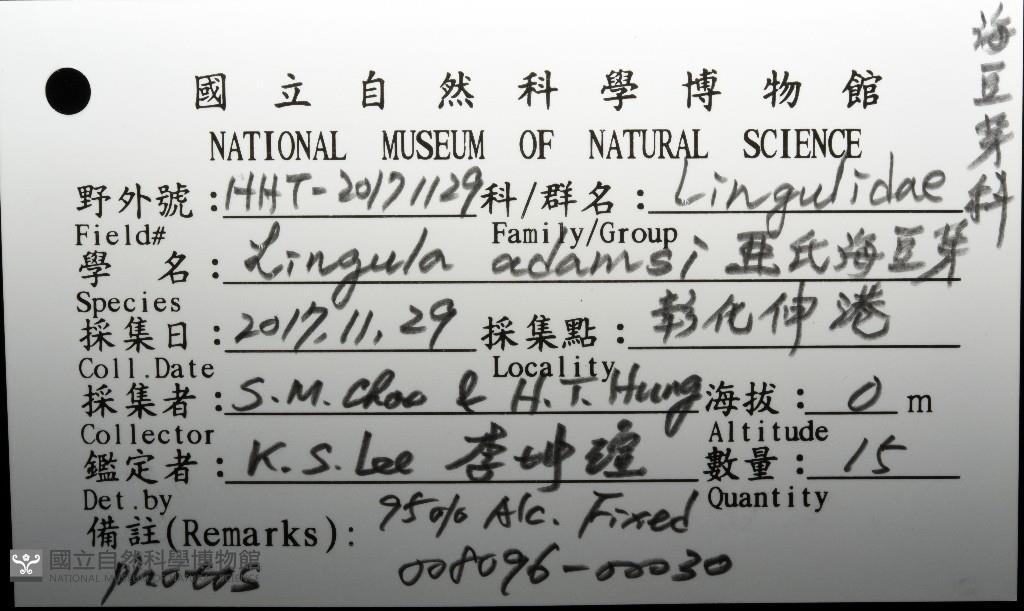 國立自然科學博物館
NATIONAL MUSEUM OF NATURAL SCIENCE
海豆芽科
野外號：HHT-20171129 科/群名：Lingulidae
Field# Family/Group
學 名：Lingula adamsi 亜氏海豆芽
Species
採集日：2017.11.29 採集點：彰化伸港
Coll.Date Locality
採集者：S.M. Chao & H.T. Hung 海拔：0 m
Collector Altitude
鑑定者：K.S. Lee 李坤瑄 數量：15
Det.by Quantity
備註(Remarks): 95% Alc. Fixed
photos 008096-00030
國立自然科學博物館
NATIONAL